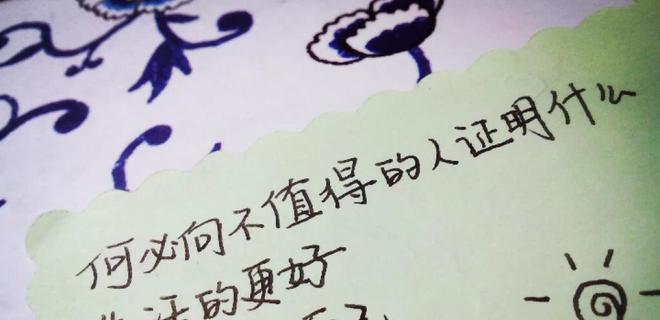 何必向不值得的人证明什么
活的更好